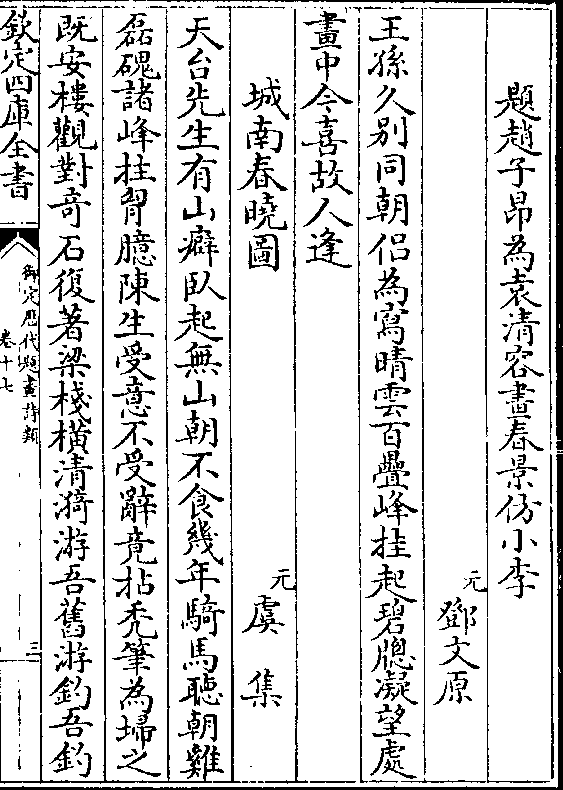 題趙子昂為袁清容畫春景仿小李
元 鄧文原
王孫久别同朝侣為寫晴雲百疊峰挂起碧牎凝望處
畫中今喜故人逢
城南春曉圖
元 虞集
天台先生有山癖卧起無山朝不食幾年騎馬聽朝雞
磊磈諸峰拄胷臆陳生受意不受辭竟拈秃筆為埽之
既安樓觀對竒石復著梁棧横清漪游吾舊游釣吾釣
欽定四庫全書
御定歴代題畫詩類
卷十七
三